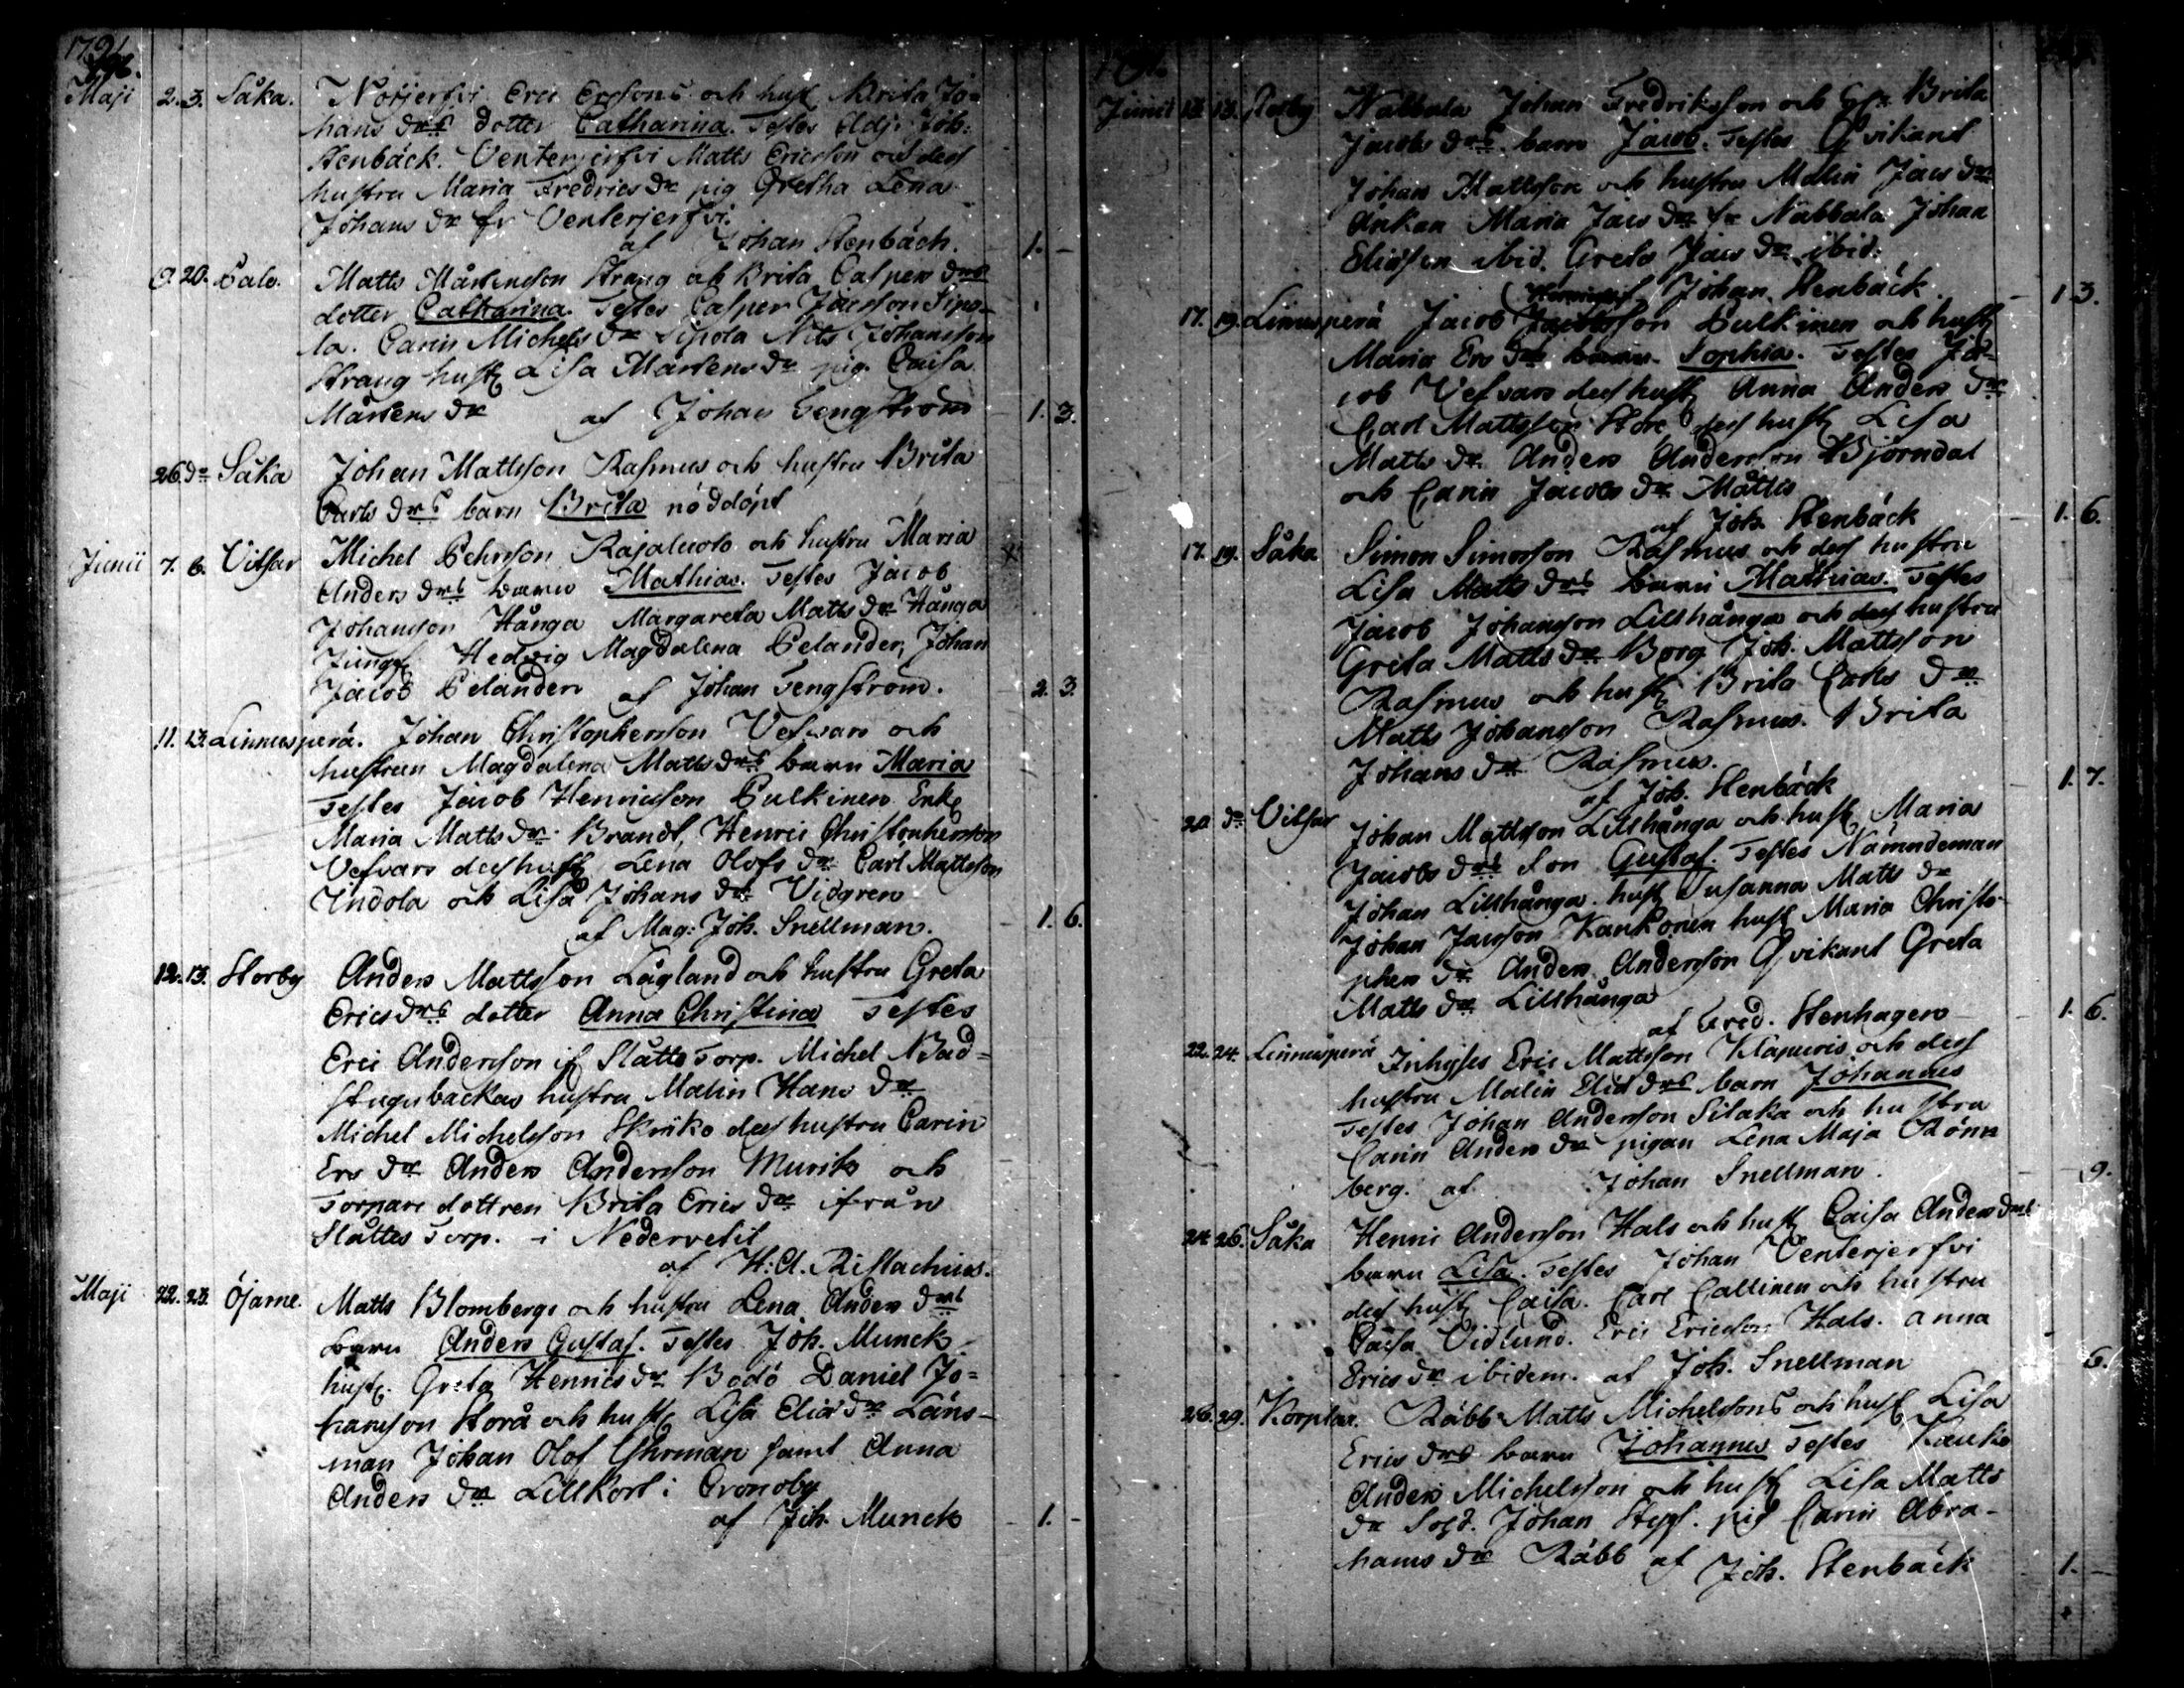 1791.
Maji 2. 3. Såka. Nörjerfvi Eric Ersons och hust Brita Jo=
hans drs dotter Catharina. Testes Adj: Joh:
Stenbäck. Ventenjerfvi Matts Ericsson och dess
hustru Maria Fredrics dr pig Gretha Lena
Johans dr fr Venterjerfvi.
af Johan Stenbäck. 1. -
9. 20. Palo. Matts Mårtensson Strang och Brita Caspers drs
dotter Catharina. Testes Casper Jacsson Sipo-
la. Carin Michels dr Sipola Nils Johansson
Strang hust Lisa Mårtens dr pig. Caisa
Mårtens dr af Johan Tengström 1. 3.
26. do Såka Johan Mattsson Rasmus och hustru Brita
Carls drs barn Brita nöddöpt
Junii 7. 8. Vitsar Michel Pehrsson Rajaluoto och hustru Maria
Anders drs barn Mathias. Testes Jacob
Johansson Hånga Margareta Matts dr Hånga
Jungf Hedvig Magdalena Pelander, Johan
Jacob Pelander af Johan Tengström. 2. 3.
11. 13. Linnusperä. Johan Christophersson Vefvars och
hustrun Magdalena Matts drs barn Maria
Testes Jacob Henricsson Pulkinen Enk
Maria Matts dr Brandt, Henric Christophersson
Vefvars dess hust Lena Olofs dr Carl Mattsson
Indola och Lisa Johans dr Vidgren
af Mag: Joh. Snellman. 1. 6.
12. 13. Storby Anders Mattsson Lågland och hustru Greta
Erics drs dotter Anna Christina Testes
Eric Andersson if Slåttes Torp. Michel Bad=
stugubackas hustru Malin Hans dr
Michel Michelsson Skriko dess hustru Carin
Ers dr Anders Andersson Murik och
Torpare dottren Brita Erics dr ifrån
Slåttes Torp. i Nedervetil
af H: A. Ristachius.
Maji 22. 23. Öjarne. Matts Blombergs och hustru Lena Anders drs
barn Anders Gustaf. Testes Joh. Munck
hust. Greta Henrics dr Bodö Daniel Jo=
hansson Storå och hust Lisa Elia dr Läns-
man Johan Olof Ehrman samt Anna
Anders dr Lillkort i Cronoby
af Joh. Munck 1. -
Junii 12. 13. Storby Nabbala Johan Fredriksson och hu Brita
Jacobs drs barn Jacob. Testes Qvikant
Johan Mattsson och hustru Malin Jacs dr
Änkan Maria Jacs dr fr Nabbala Johan
Eliasson ibid. Greta Jacs dr ibid.
Johan Stenbäck 1. 3.
17. 19. Linnusperä Jacob Henricsson Pulkinen och hust
Maria Ers drs barn. Sophia. Testes Ja-
cob Vefvars dess hust Anna Anders dr
Carl Mattsson Store dess hust Lisa
Matts dr Anders Andersson Björndal
och Carin Jacobs dr Matlis
af Joh. Stenbäck 1. 6.
17. 19. Såka Simon Simonsson Rasmus och dess hustru
Lisa Matts drs barn Mathias. Testes
Jacob Johansson Lillhånga och dess hustru
Greta Matts dr Borg Joh. Mattsson
Rasmus och hust Brita Carls dr
Matts Johansson Rasmus. Brita
Johans dr Rasmus.
af Joh. Stenbäck 1. 7.
20 do Vitsar Johan Mattsson Lillhånga och hust Maria
Jacobs drs son Gustaf. Testes Nämndeman
Johan Lillhånga hust Susanna Matts dr
Johan Jacsson Kankonen hust Maria Christo-
phers dr Anders Andersson Qvikant Greta
Matts dr Lillhånga
af Fred. Stenhagen 1. 6.
22. 24. Linnusperä Inhyses Eric Mattsson Klapuris och dess
hustru Malin Elia drs barn Johannes
Testes Johan Andersson Silaka och hustru
Carin Anders dr pigan Lena Maja Rönn
berg. af Johan Snellman. 9.
24. 26. Såka Henric Andersson Hals och hust Caisa Anders drs
barn Lisa. Testes Johan Venterjerfvi
dess hust Caisa. Carl Callinen och hustru
Caisa Vidlund. Eric Ericsson Hals. Anna
Erics dr ibidem. af Joh. Snellman 6.
26. 29. Korplax. Räbb Matts Michelssons och hust Lisa
Erics drs barn Johannes Testes Kauko
Anders Michelsson och hust Lisa Matts
dr Sold. Johan Steps. pig Carin Abra-
hams dr Räbb af Joh. Stenbäck 1. -